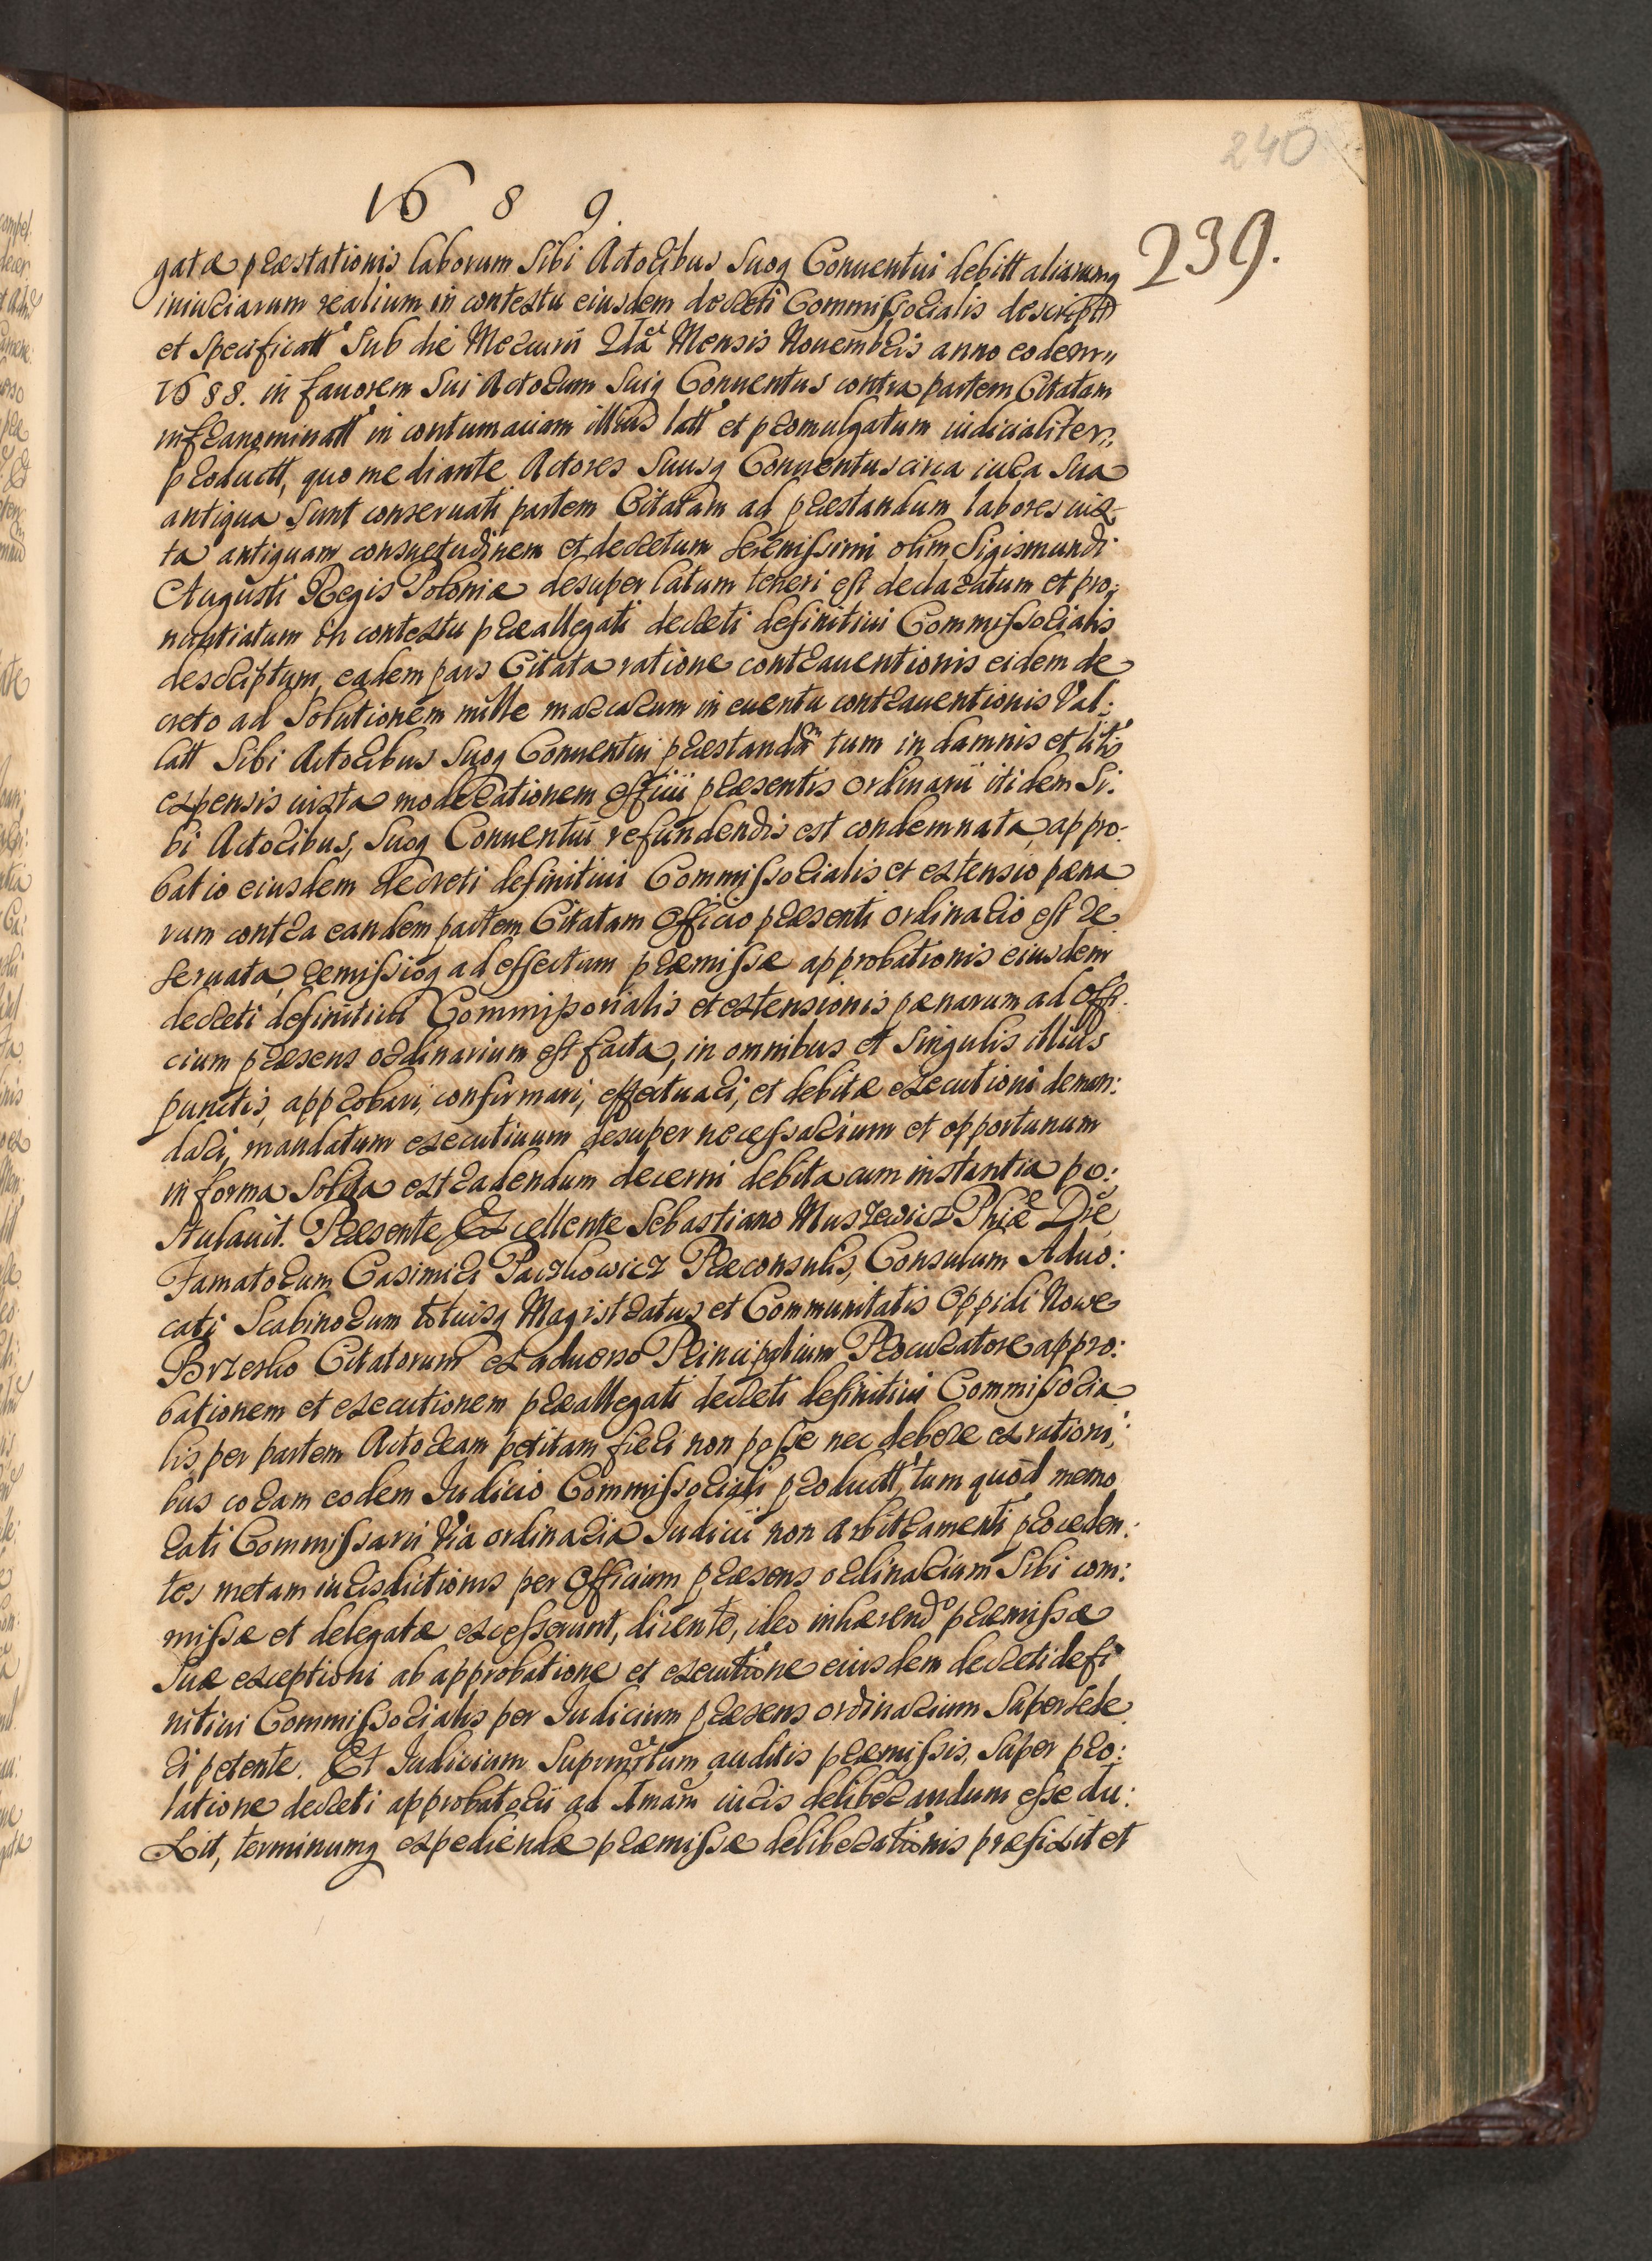 240
1689.
239.
gatæ præstationis laborum Sibi Actoribus Suoq Conuentui debitt aliarumq
iniuriarum realium in contextu eiusdem decreti Commissorialis descriptt
et specificatt Sub die Mercurii 2da Mensis Nouembris anno eodem
1688. in fauorem Sui Actorum Suiq Conuentus contra partem Citatam
infranominatt in contumaciam illius latt et promulgatum iudicialiter
productt, quo mediante Actores Suusq Conuentus circa iura Sua
antiqua Sunt conseruati partem Citatam ad præstandum labores iux
ta antiquam consuetudinem et decretum Serenissimi olim Sigismundi
Augusti Regis Poloniæ desuper latum teneri est declaratum et pro:
nuntiatum in contextu præallegati decreti definitiui Commissorialis
descriptum, eadem pars Citata ratione contrauentionis eidem de
creto ad Solutionem mille marcarum in euentu contrauentionis Val:
latt Sibi Actoribus Suoq Conuentui præstandam tum in damnis et litis
expensis iuxta moderationem officii præsentis ordinarii itidem Si:
bi Actoribus, Suoq Conuentui refundendis est condemnata, appro:
batio eiusdem decreti definitiui Commissorialis et extensio pæna
rum contra eandem partem Citatam Officio præsenti ordinario est re
seruata, remissioq ad effectum præmissæ approbationis eiusdem
decreti definitiui Commissorialis et extensionis pænarum ad Offi:
cium præsens ordinarium est facta, in omnibus et Singulis illius
punctis, approbari, confirmari, effectuari, et debitæ executioni deman:
dari, mandatum executiuum desuper necessarium et opportunum
in forma Solita extradendum decerni debita cum instantia po:
stulauit. Præsente Excellente Sebastiano Muszewicz Phiæ Dre,
Famatorum Casimiri Paczkowicz Præconsulis, Consulum Aduo:
cati Scabinorum totiusq Magistratus et Communitatis Oppidi Nowe
Brzesko Citatorum ex aduerso Principalium Procuratore appro:
bationem et executionem præallegati decreti definitiui Commissoria
lis per partem Actoream petitam fieri non posse nec debere ex rationi:
bus coram eodem Iudicio Commissoriali productt, tum quod memo
rati Commissarii Via ordinaria Iudicii non arbitramenti proceden:
tes metam iurisdictionis per Officium præsens ordinarium Sibi com:
missæ et delegatæ excesserunt, dicente, ideo inhærendo præmissæ
Suæ exceptioni ab approbatione et executione eiusdem decreti defi
nitiui Commissorialis per Iudicium præsens ordinarium Supersede
ri petente. Et Iudicium Suprmttum auditis præmissis, Super pro:
latione decreti approbatorii ad Amam iuris deliberandum esse du:
xit, terminumq expediendæ præmissæ deliberationis præfixit et